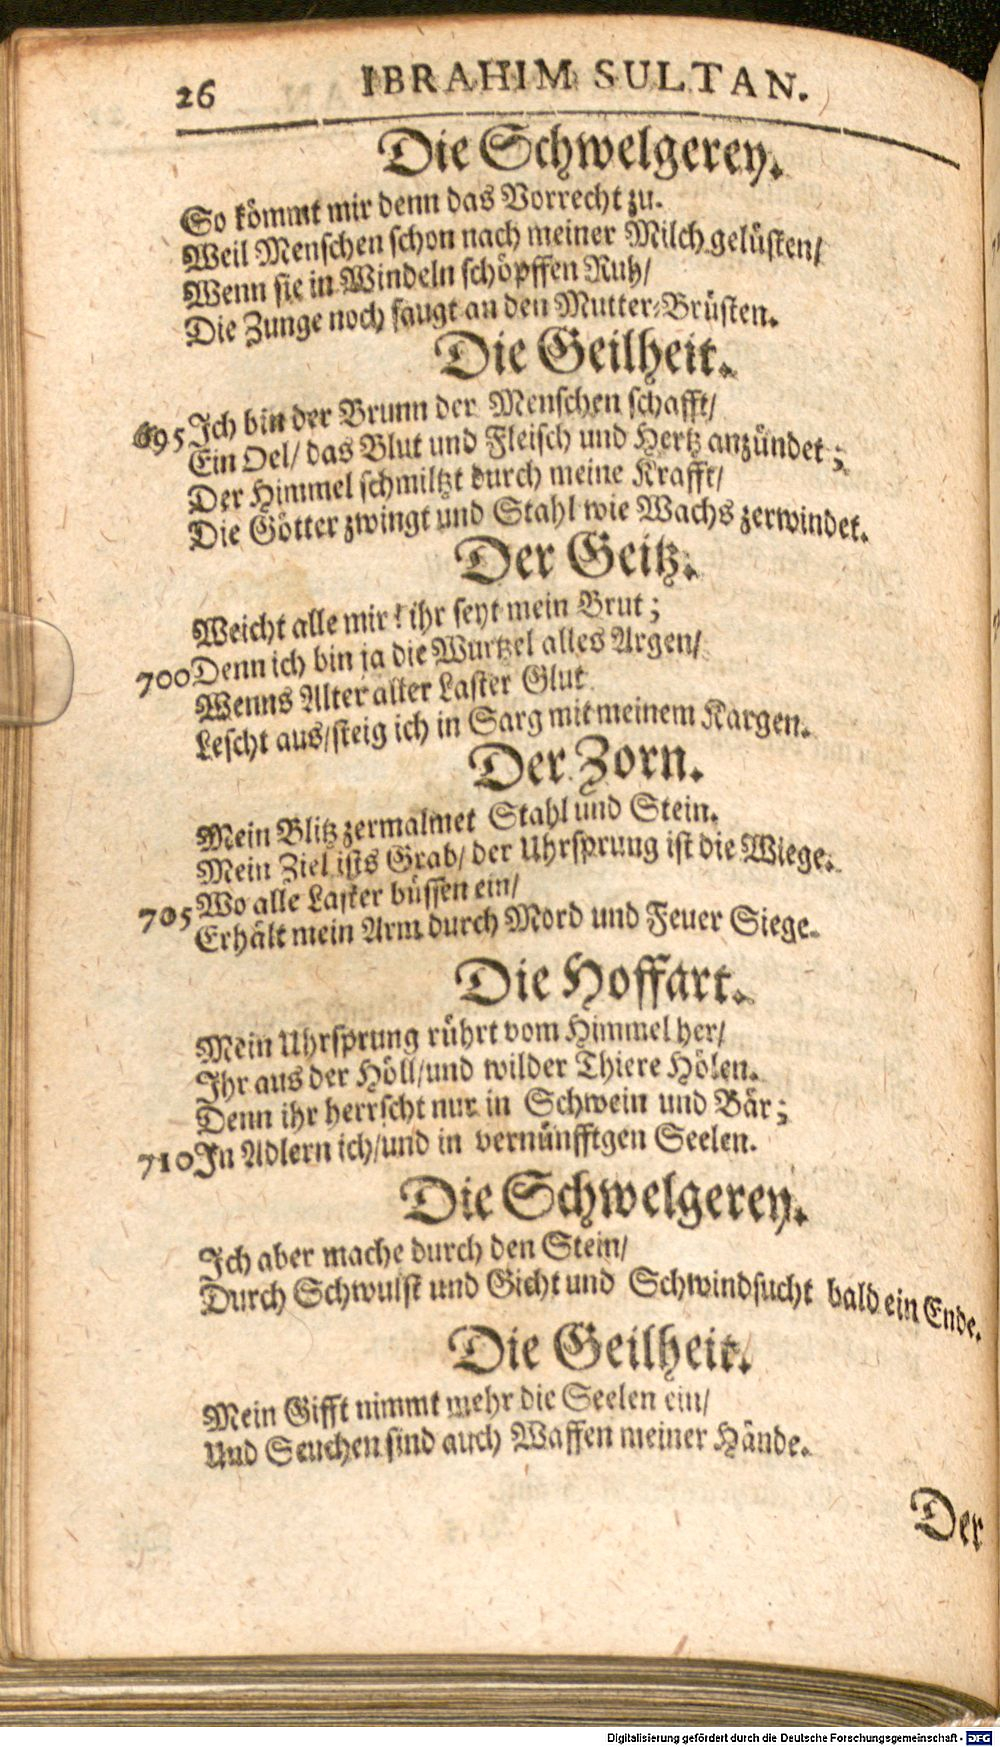 26 IBRAHIM SULTAN.
Die Schwelgerey.
So kömmt mir denn das Vorrecht zu.
Weil Menschen schon nach meiner Milch gelüsten/
Wenn sie in Windeln schöpffen Ruh/
Die Zunge noch saugt an den Mutter-Brüsten.
Die Geilheit.
695 Ich bin der Brunn der Menschen schafft/
Ein Oel/ das Blut und Fleisch und Hertz anzündet;
Der Himmel schmiltzt durch meine Krafft/
Die Götter zwingt und Stahl wie Wachs zerwindet.
Der Geitz.
Weicht alle mir! ihr seyt mein Brut;
700 Denn ich bin ja die Wurtzel alles Argen/
Wenns Alter aller Laster Glut
Lescht aus/ steig ich in Sarg mit meinem Kargen.
Der Zorn.
Mein Blitz zermalmet Stahl und Stein.
Mein Ziel ists Grab/ der Uhrsprung ist die Wiege.
705 Wo alle Laster büssen ein/
Erhält mein Arm durch Mord und Feuer Siege.
Die Hoffart.
Mein Uhrsprung rührt vom Himmel her/
Ihr aus der Höll/ und wilder Thiere Hölen.
Denn ihr herrscht nur in Schwein und Bär;
710 In Adlern ich/ und in vernünfftgen Seelen.
Die Schwelgerey.
Ich aber mache durch den Stein/
Durch Schwulst und Gicht und Schwindsucht bald ein Ende.
Die Geilheit.
Mein Gifft nimmt mehr die Seelen ein/
Und Seuchen sind auch Waffen meiner Hände.
Der
Digitalisierung gefördert durch die Deutsche Forschungsgemeinschaft - DFG